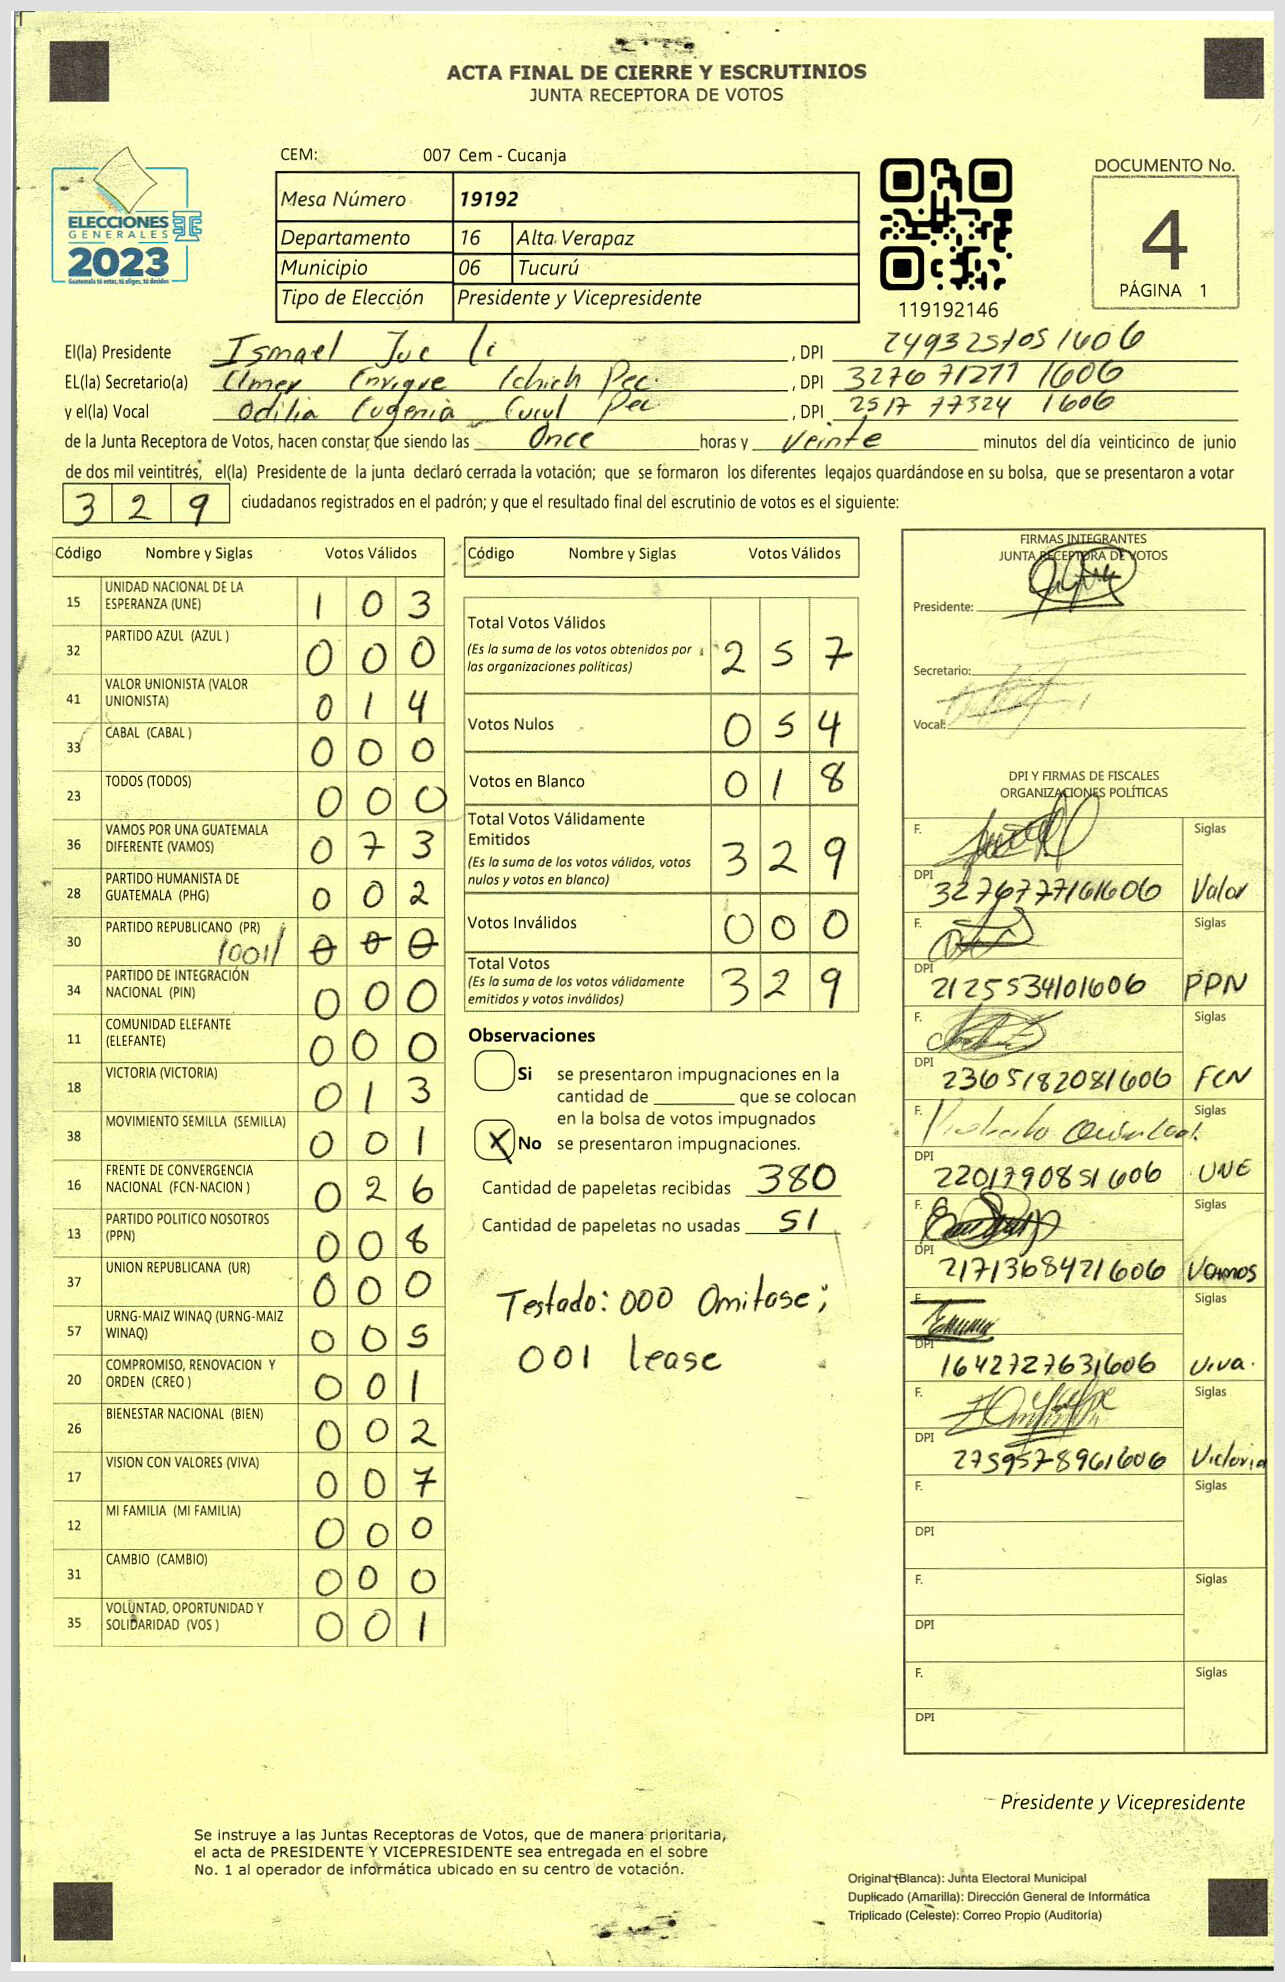 ACTA FINAL DE CIERRE Y ESCRUTINIOS
JUNTA RECEPTORA DE VOTOS
ELECCIONES
GENERALES
2023
Guatemala tú votas, tú eliges, tú decides
CEM: 007 Cem - Cucanja
Mesa Número 19192
Departamento 16 Alta Verapaz
Municipio 06 Tucurú
Tipo de Elección Presidente y Vicepresidente
119192146
DOCUMENTO No.
4
PÁGINA 1
El(la) Presidente Ismael Juc , DPI 2493251051606
EL(la) Secretario(a) Elmer Enrique Ichich Pec. , DPI 3276 71271 1606
y el(la) Vocal Odilia Eugenia Cucul Pec. , DPI 2517 77324 1606
de la Junta Receptora de Votos, hacen constar que siendo las Once horas y veinte minutos del día veinticinco de junio
de dos mil veintitrés, el(la) Presidente de la junta declaró cerrada la votación; que se formaron los diferentes legajos quardándose en su bolsa, que se presentaron a votar
329 ciudadanos registrados en el padrón; y que el resultado final del escrutinio de votos es el siguiente:
Código Nombre y Siglas Votos Válidos
15 UNIDAD NACIONAL DE LA ESPERANZA (UNE) 103
32 PARTIDO AZUL (AZUL ) 000
41 VALOR UNIONISTA (VALOR UNIONISTA) 014
33 CABAL (CABAL ) 000
23 TODOS (TODOS) 000
36 VAMOS POR UNA GUATEMALA DIFERENTE (VAMOS) 073
28 PARTIDO HUMANISTA DE GUATEMALA (PHG) 002
30 PARTIDO REPUBLICANO (PR) /001/ 000
34 PARTIDO DE INTEGRACIÓN NACIONAL (PIN) 000
11 COMUNIDAD ELEFANTE (ELEFANTE) 000
18 VICTORIA (VICTORIA) 013
38 MOVIMIENTO SEMILLA (SEMILLA) 001
16 FRENTE DE CONVERGENCIA NACIONAL (FCN-NACION ) 026
13 PARTIDO POLITICO NOSOTROS (PPN) 008
37 UNION REPUBLICANA (UR) 000
57 URNG-MAIZ WINAQ (URNG-MAIZ WINAQ) 005
20 COMPROMISO, RENOVACION Y ORDEN (CREO ) 001
26 BIENESTAR NACIONAL (BIEN) 002
17 VISION CON VALORES (VIVA) 007
12 MI FAMILIA (MI FAMILIA) 000
31 CAMBIO (CAMBIO) 000
35 VOLUNTAD, OPORTUNIDAD Y SOLIDARIDAD (VOS ) 001
Código Nombre y Siglas Votos Válidos
Total Votos Válidos 257
(Es la suma de los votos obtenidos por
las organizaciones políticas)
Votos Nulos 054
Votos en Blanco 018
Total Votos Válidamente
Emitidos 329
(Es la suma de los votos válidos, votos
nulos y votos en blanco)
Votos Inválidos 000
Total Votos 329
(Es la suma de los votos válidamente
emitidos y votos inválidos)
Observaciones
Si se presentaron impugnaciones en la
cantidad de ________ que se colocan
en la bolsa de votos impugnados
X No se presentaron impugnaciones.
Cantidad de papeletas recibidas 380
Cantidad de papeletas no usadas 51
Testado: 000 Omitase;
001 lease
FIRMAS INTEGRANTES
JUNTA RECEPTORA DE VOTOS
Presidente:
Secretario:
Vocal:
DPI Y FIRMAS DE FISCALES
ORGANIZACIONES POLÍTICAS
F. Siglas
DPI 3276777161606 Valor
F. Siglas
DPI 2125534101606 PPN
F. Siglas
DPI 2365182081606 FCN
F. Siglas
DPI 2201790851606 UNE
F. Siglas
DPI 2171368421606 Vamos
F. Siglas
DPI 1642727631606 Viva.
F. Siglas
DPI 2759578961606 Victoria
F. Siglas
DPI
F. Siglas
DPI
F. Siglas
DPI
Presidente y Vicepresidente
Se instruye a las Juntas Receptoras de Votos, que de manera prioritaria,
el acta de PRESIDENTE Y VICEPRESIDENTE sea entregada en el sobre
No. 1 al operador de informática ubicado en su centro de votación.
Original (Blanca): Junta Electoral Municipal
Duplicado (Amarilla): Dirección General de Informática
Triplicado (Celeste): Correo Propio (Auditoría)